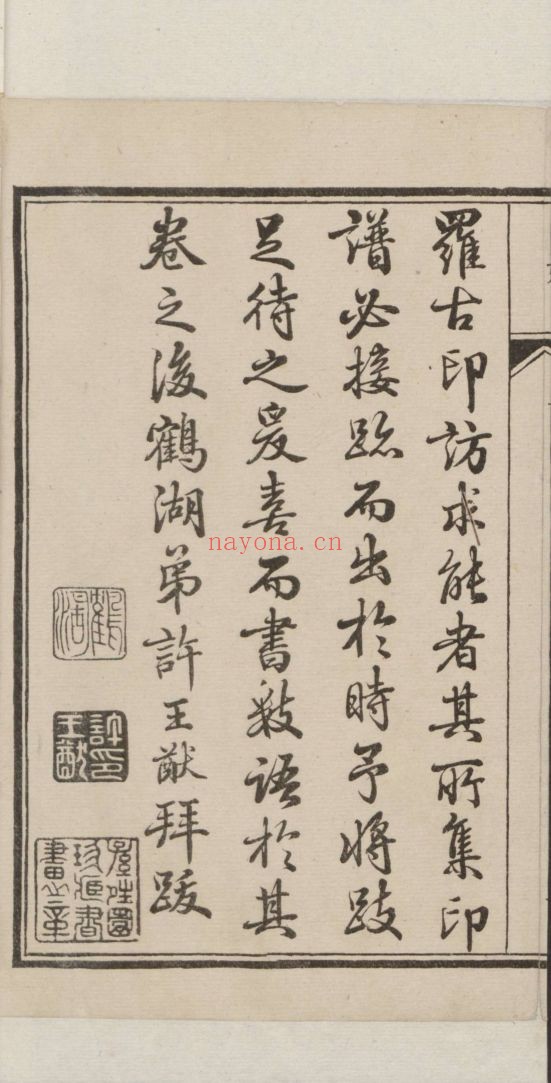 羅古印訪求能者其所集印
譜必接跡而出於時予將跂
足待之爰喜而書數語於其
卷之後鶴湖弟許王猷拜跋
鶴湖
許王猷印
nayona.cn